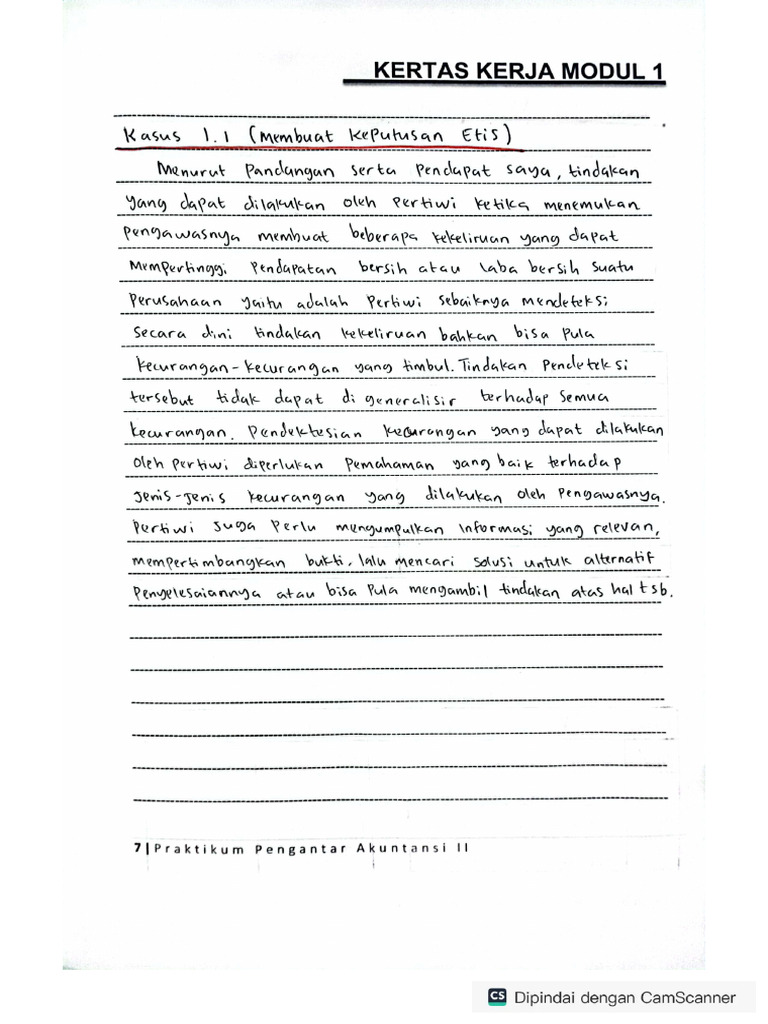 KERTAS KERJA MODUL 1
Kasus 1.1 (Membuat Keputusan Etis)
Menurut Pandangan serta Pendapat saya, tindakan
yang dapat dilakukan oleh Pertiwi ketika menemukan
Pengawasnya membuat beberapa kekeliruan yang dapat
Mempertinggi Pendapatan bersih atau laba bersih suatu
Perusahaan yaitu adalah Pertiwi sebaiknya mendeteksi
Secara dini tindakan kekeliruan bahkan bisa pula
kecurangan-kecurangan yang timbul. Tindakan Pendeteksi
tersebut tidak dapat di generalisir terhadap semua
kecurangan. Pendektesian kecurangan yang dapat dilakukan
Oleh Pertiwi diperlukan Pemahaman yang baik terhadap
Jenis-Jenis kecurangan yang dilakukan oleh Pengawasnya.
Pertiwi Juga Perlu mengumpulkan Informasi yang relevan,
mempertimbangkan bukti, lalu mencari solusi untuk alternatif
Penyelesaiannya atau bisa Pula mengambil tindakan atas hal tsb.
7|Praktikum Pengantar Akuntansi II
CS Dipindai dengan CamScanner